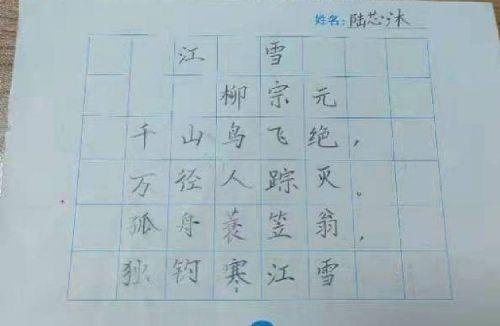 姓名:陆芯沐
江雪
柳宗元
千山鸟飞绝，
万径人踪灭。
孤舟蓑笠翁，
独钓寒江雪